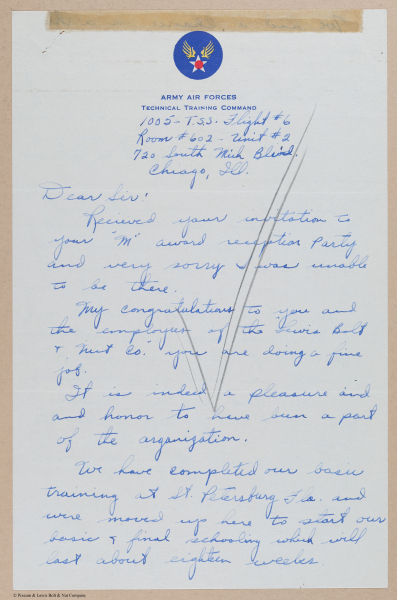 ARMY AIR FORCES
TECHNICAL TRAINING COMMAND
1005 - T.S.S. Flight #6
Room #602 - Unit #2
720 South Mich Blvd.
Chicago, Ill.
Dear Sir:
Recieved your invitation to
your "M" award reception Party
and very sorry I was unable
to be there.
My congratulations to you and
the employees of the Lewis Bolt
& Nut Co." you are doing a fine
job.
It is indeed a pleasure and
and honor to have been a part
of the organization.
We have completed our basic
training at St. Petersburg Fla. and
were moved up here to start our
basic & final schooling which will
last about eighteen weeks
© Possum & Lewis Bolt & Nut Company